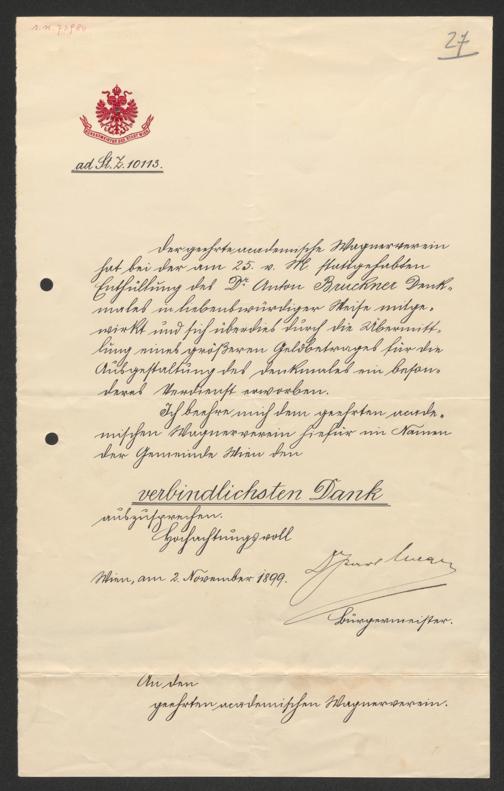 27
BÜRGERMEISTER DER STADT WIEN
ad St. Z. 10113.
Der geehrte academische Wagnerverein
hat bei der am 25. v. M stattgehabten
Enthüllung des Dr. Anton Bruckner Denk-
males in liebenswürdiger Weise mitge-
wirkt und sich überdies durch die Übermitt-
lung eines größeren Geldbetrages für die
Ausgestaltung des Denkmales ein beson-
deres Verdienst erworben.
Ich beehre mich dem geehrten acade-
mischen Wagnerverein hiefür im Namen
der Gemeinde Wien den
verbindlichsten Dank
auszusprechen.
Hochachtungsvoll
Wien, am 2. November 1899.
Dr Karl Lueger
Bürgermeister.
An den
geehrten academischen Wagnerverein.